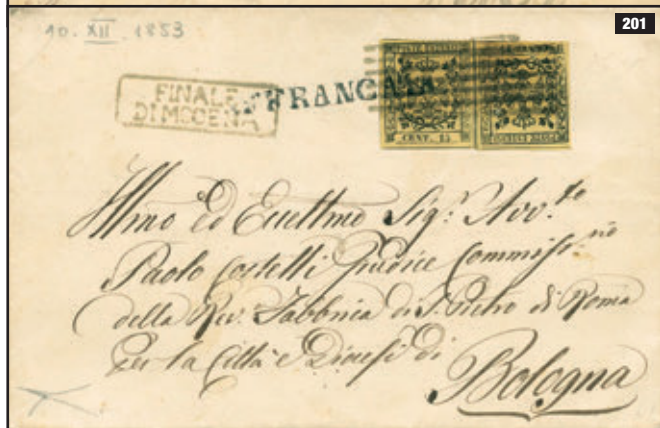 201
10. XII. 1853
FINALE
DI MODENA
AFFRANCATA
CENT. 15
Illmo ed Eccellmo Sigr. Avv.to
Paolo Costelli Giudice Commiss.rio
della Rev. Fabbrica di S. Pietro di Roma
Per la Città e Diocesi di
Bologna